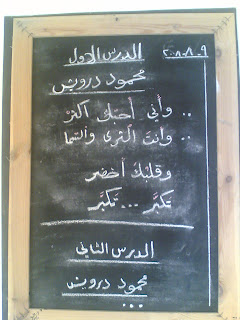 ٩-٨-٢٠٠٨
الدرس الاول
محمود درويش
.. وأني أحبك اكثر
.. وانت الثرى والسما
وقلبك أخضر
تكبّر ... تكبّر
الدرس الثاني
محمود درويش
...